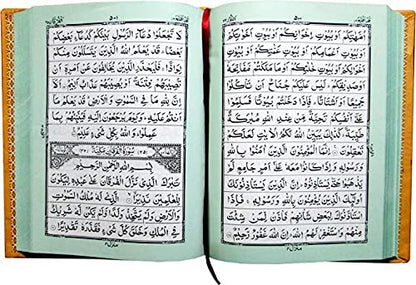 اُمَّهٰتِكُمْ اَوْ بُيُوْتِ اِخْوَانِكُمْ اَوْ بُيُوْتِ اَخَوٰتِكُمْ
اَوْ بُيُوْتِ اَعْمَامِكُمْ اَوْ بُيُوْتِ عَمّٰتِكُمْ اَوْ بُيُوْتِ
اَخْوَالِكُمْ اَوْ بُيُوْتِ خٰلٰتِكُمْ اَوْ مَا مَلَكْتُمْ مَّفَاتِحَهٗۤ
اَوْ صَدِيْقِكُمْ لَيْسَ عَلَيْكُمْ جُنَاحٌ اَنْ تَاْكُلُوْا
جَمِيْعًا اَوْ اَشْتَاتًا فَاِذَا دَخَلْتُمْ بُيُوْتًا فَسَلِّمُوْا
عَلٰۤى اَنْفُسِكُمْ تَحِيَّةً مِّنْ عِنْدِ اللّٰهِ مُبٰرَكَةً
طَيِّبَةً كَذٰلِكَ يُبَيِّنُ اللّٰهُ لَكُمُ الْاٰيٰتِ لَعَلَّكُمْ
تَعْقِلُوْنَ اِنَّمَا الْمُؤْمِنُوْنَ الَّذِيْنَ اٰمَنُوْا بِاللّٰهِ
وَرَسُوْلِهٖ وَاِذَا كَانُوْا مَعَهٗ عَلٰۤى اَمْرٍ جَامِعٍ لَّمْ
يَذْهَبُوْا حَتّٰى يَسْتَاْذِنُوْهُ اِنَّ الَّذِيْنَ يَسْتَاْذِنُوْنَكَ
اُولٰٓئِكَ الَّذِيْنَ يُؤْمِنُوْنَ بِاللّٰهِ وَرَسُوْلِهٖ فَاِذَا
اسْتَاْذَنُوْكَ لِبَعْضِ شَاْنِهِمْ فَاْذَنْ لِّمَنْ شِئْتَ
مِنْهُمْ وَاسْتَغْفِرْ لَهُمُ اللّٰهَ اِنَّ اللّٰهَ غَفُوْرٌ رَّحِيْمٌ
٥٠١
لَا تَجْعَلُوْا دُعَآءَ الرَّسُوْلِ بَيْنَكُمْ كَدُعَآءِ بَعْضِكُمْ
بَعْضًا قَدْ يَعْلَمُ اللّٰهُ الَّذِيْنَ يَتَسَلَّلُوْنَ مِنْكُمْ
لِوَاذًا فَلْيَحْذَرِ الَّذِيْنَ يُخَالِفُوْنَ عَنْ اَمْرِهٖۤ اَنْ
تُصِيْبَهُمْ فِتْنَةٌ اَوْ يُصِيْبَهُمْ عَذَابٌ اَلِيْمٌ اَلَاۤ
اِنَّ لِلّٰهِ مَا فِى السَّمٰوٰتِ وَالْاَرْضِ قَدْ يَعْلَمُ مَاۤ
اَنْتُمْ عَلَيْهِ وَيَوْمَ يُرْجَعُوْنَ اِلَيْهِ فَيُنَبِّئُهُمْ بِمَا
عَمِلُوْا وَاللّٰهُ بِكُلِّ شَىْءٍ عَلِيْمٌ
بِسْمِ اللّٰهِ الرَّحْمٰنِ الرَّحِيْمِ
تَبٰرَكَ الَّذِيْ نَزَّلَ الْفُرْقَانَ عَلٰى عَبْدِهٖ لِيَكُوْنَ
لِلْعٰلَمِيْنَ نَذِيْرًا الَّذِيْ لَهٗ مُلْكُ السَّمٰوٰتِ
وَالْاَرْضِ وَلَمْ يَتَّخِذْ وَلَدًا وَّلَمْ يَكُنْ لَّهٗ شَرِيْكٌ
فِى الْمُلْكِ وَخَلَقَ كُلَّ شَىْءٍ فَقَدَّرَهٗ تَقْدِيْرًا